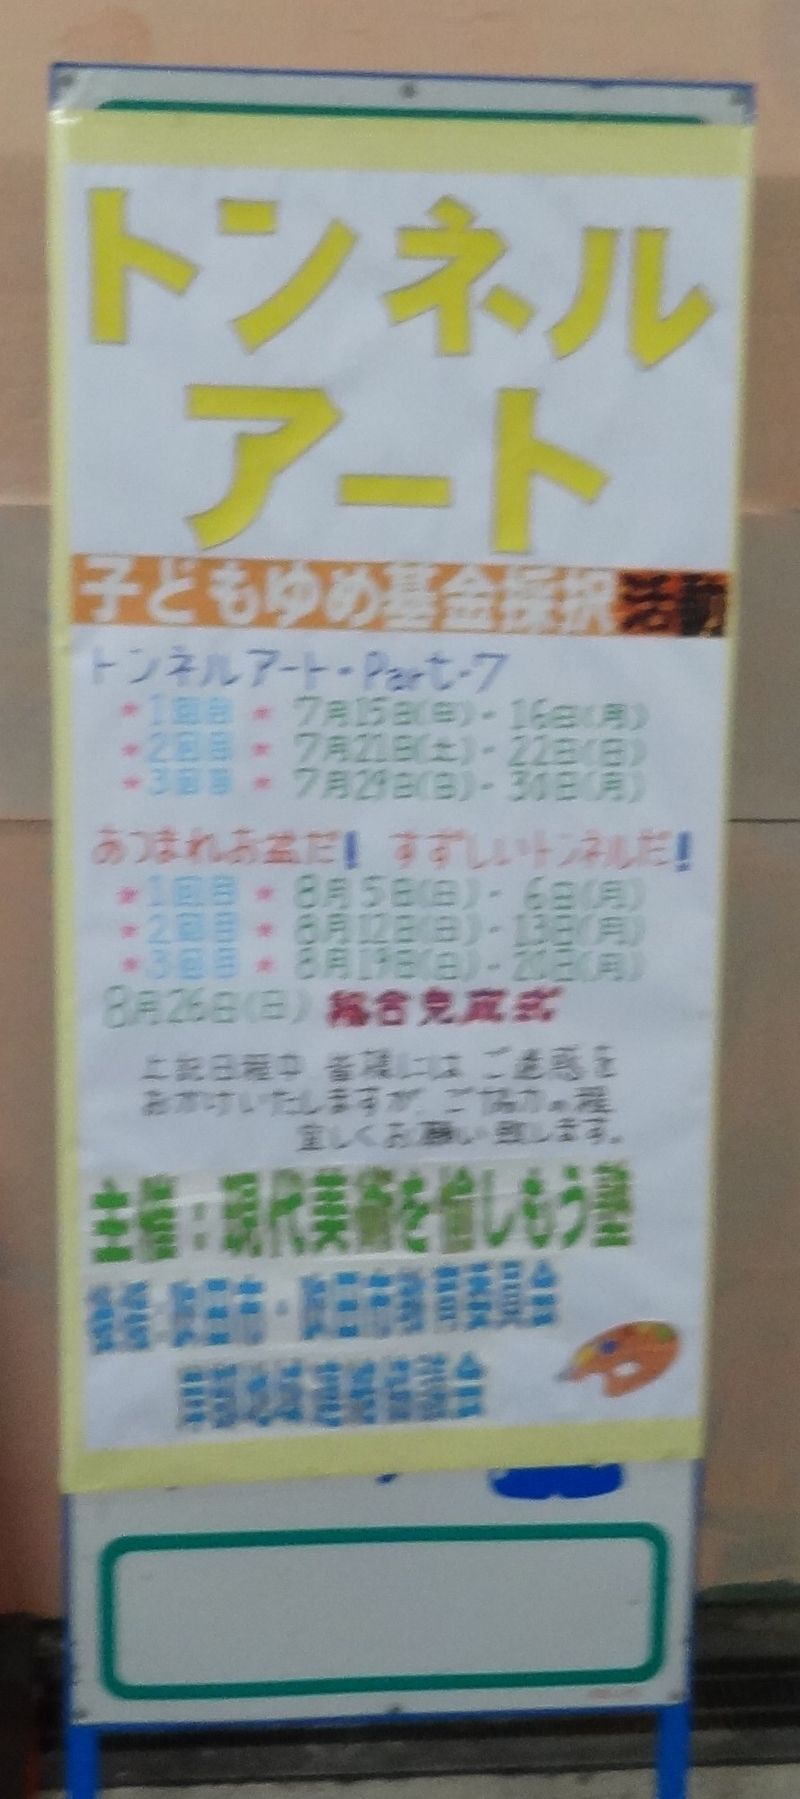 トンネル
アート
子どもゆめ基金採択活動
トンネルアート・Part-7
★1回目★ 7月15日(日)- 16日(月)
★2回目★ 7月21日(土)- 22日(日)
★3回目★ 7月29日(日)- 30日(月)
あつまれお盆だ! すずしいトンネルだ!
★1回目★ 8月5日(日)- 6日(月)
★2回目★ 8月12日(日)- 13日(月)
★3回目★ 8月19日(日)- 20日(月)
8月26日(日) 総合完成式
上記日程中 皆様には ご迷惑を
おかけいたしますが、ご協力の程
宜しくお願い致します。
主催:現代美術を愉しもう塾
後援:吹田市・吹田市教育委員会